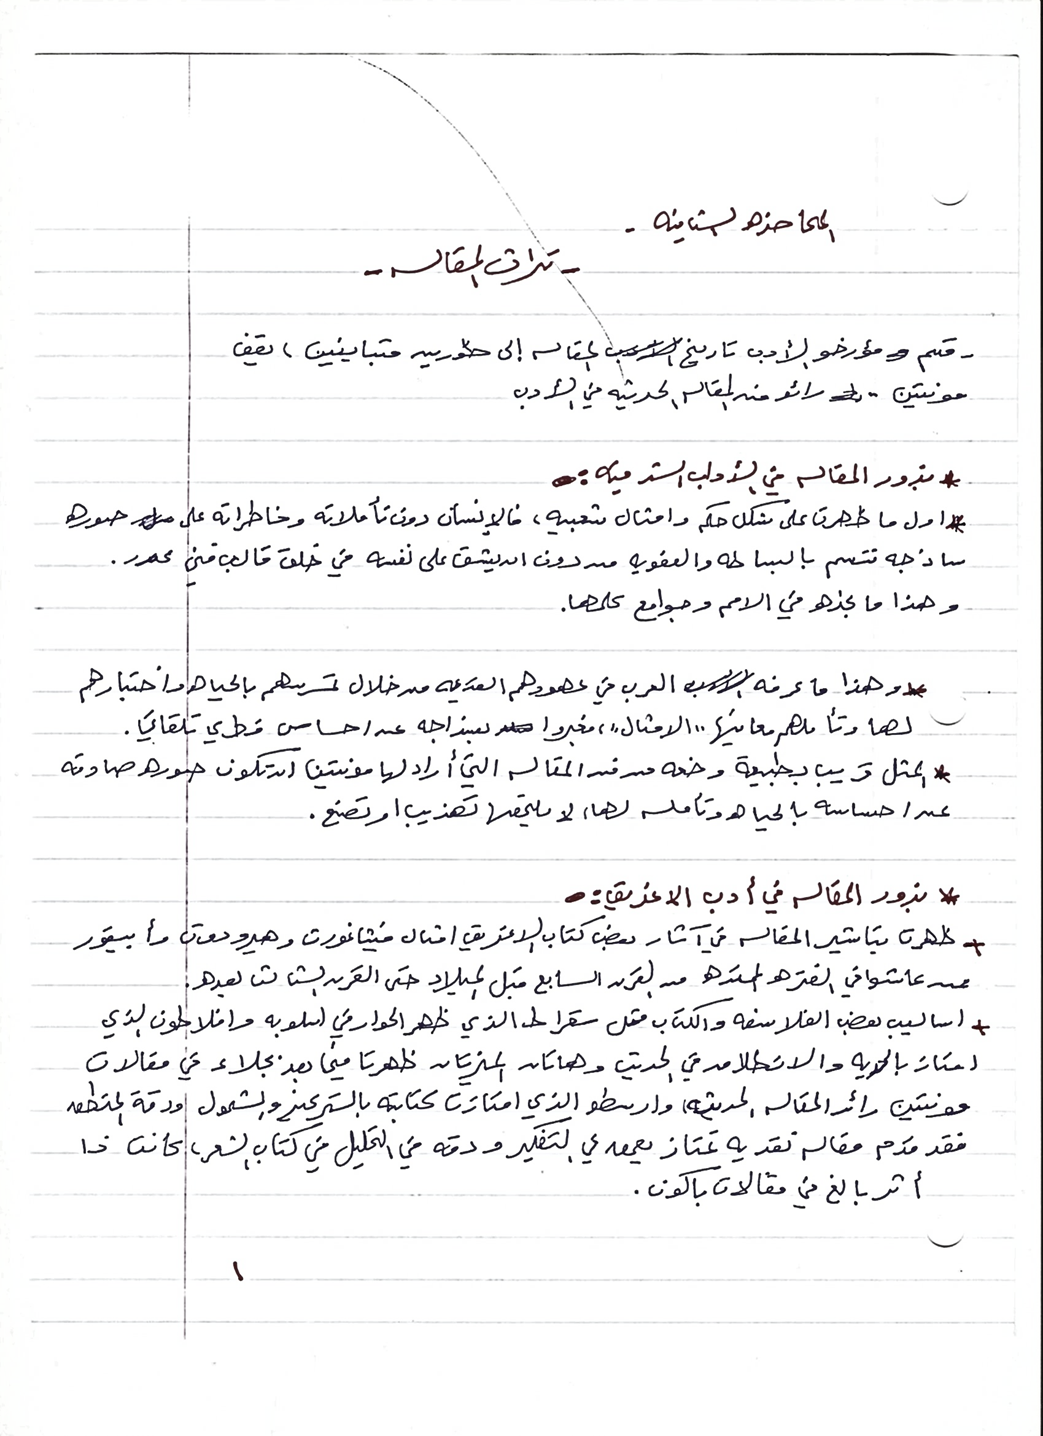 المحاضره الثانيه -
- تراث المقاله -
- قسم مؤرخو الأدب تاريخ المقاله إلى طورين متباينين ، يقف
مونتين .. رائد فن المقاله الحديثه في الأدب
* بذور المقاله في الأداب الشرقيه :-
* اول ما ظهرت على شكل حكم وامثال شعبيه ، فالإنسان دون تأملاته وخاطراته على صوره
ساذجه تتسم بالبساطه والعفويه من دون ان يشق على نفسه في خلق قالب فني محدد .
وهذا ما نجده في الامم وجوامع كلمها .
* وهذا ما عرفه العرب في عهودهم القديمه من خلال تمرسهم بالحياه واختبارهم
لها وتأملهم معانيها "الامثال" ، فعبروا بسذاجه عن احساس فطري تلقائيًا .
* المثل قريب بطبيعة وضعه من فن المقاله التي أراد لها مونتين ان تكون صوره صادقه
عن احساسه بالحياه وتأمله لها ، لا يلحقها تهذيب او تصنع .
* بذور المقاله في أدب الاغريق :-
+ ظهرت تباشير المقاله في آثار بعض كتاب الاغريق امثال فيثاغورت وهيرودوت وأبيقور
ممن عاشوا في الفتره الممتده من القرن السابع قبل الميلاد حتى القرن الثالث بعده .
+ اساليب بعض الفلاسفه والكتاب مثل سقراط الذي ظهر الحوار في اسلوبه وافلاطون الذي
امتاز بالحريه والانطلاق في الحديث وهاتان الميزتان ظهرتا فيما بعد بجلاء في مقالات
مونتين رائد المقاله الحديثه ، وارسطو الذي امتازت كتابته بالتركيز والشمول ودقة المنطق
فقد قدم مقاله نقديه تمتاز بعمق في التفكير ودقه في التحليل في كتاب الشعر ، كانت ذا
أثر بالغ في مقالات باكون .
١